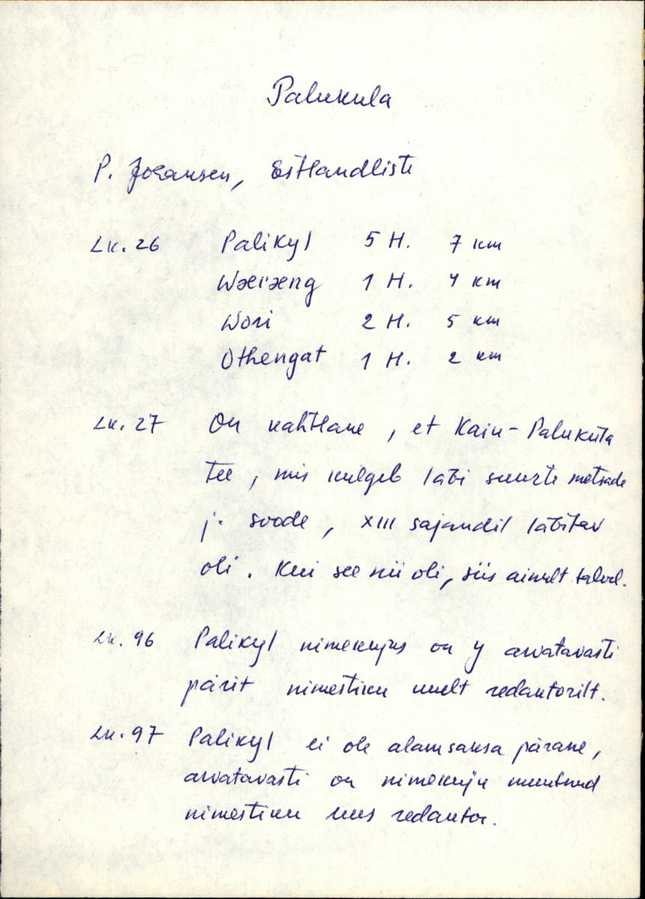 Palukula
P. Johansen, Estlandliste
Lk. 26 Palikyl 5 H. 7 km
Wæiæng 1 H. 4 km
Wori 2 H. 5 km
Othengat 1 H. 2 km
Lk. 27 On kahtlane, et Kaiu-Palukula
tee, mis kulgeb läbi suurte metsade
j. soode, XIII sajandil läbitav
oli. Kui see nii oli, siis ainult talvel.
Lk. 96 Palikyl nimekujus on y arvatavasti
pärit nimestiku uuelt redaktorilt.
Lk. 97 Palikyl ei ole alamsaksa pärane,
arvatavasti on nimekuju muutnud
nimestiku uus redaktor.